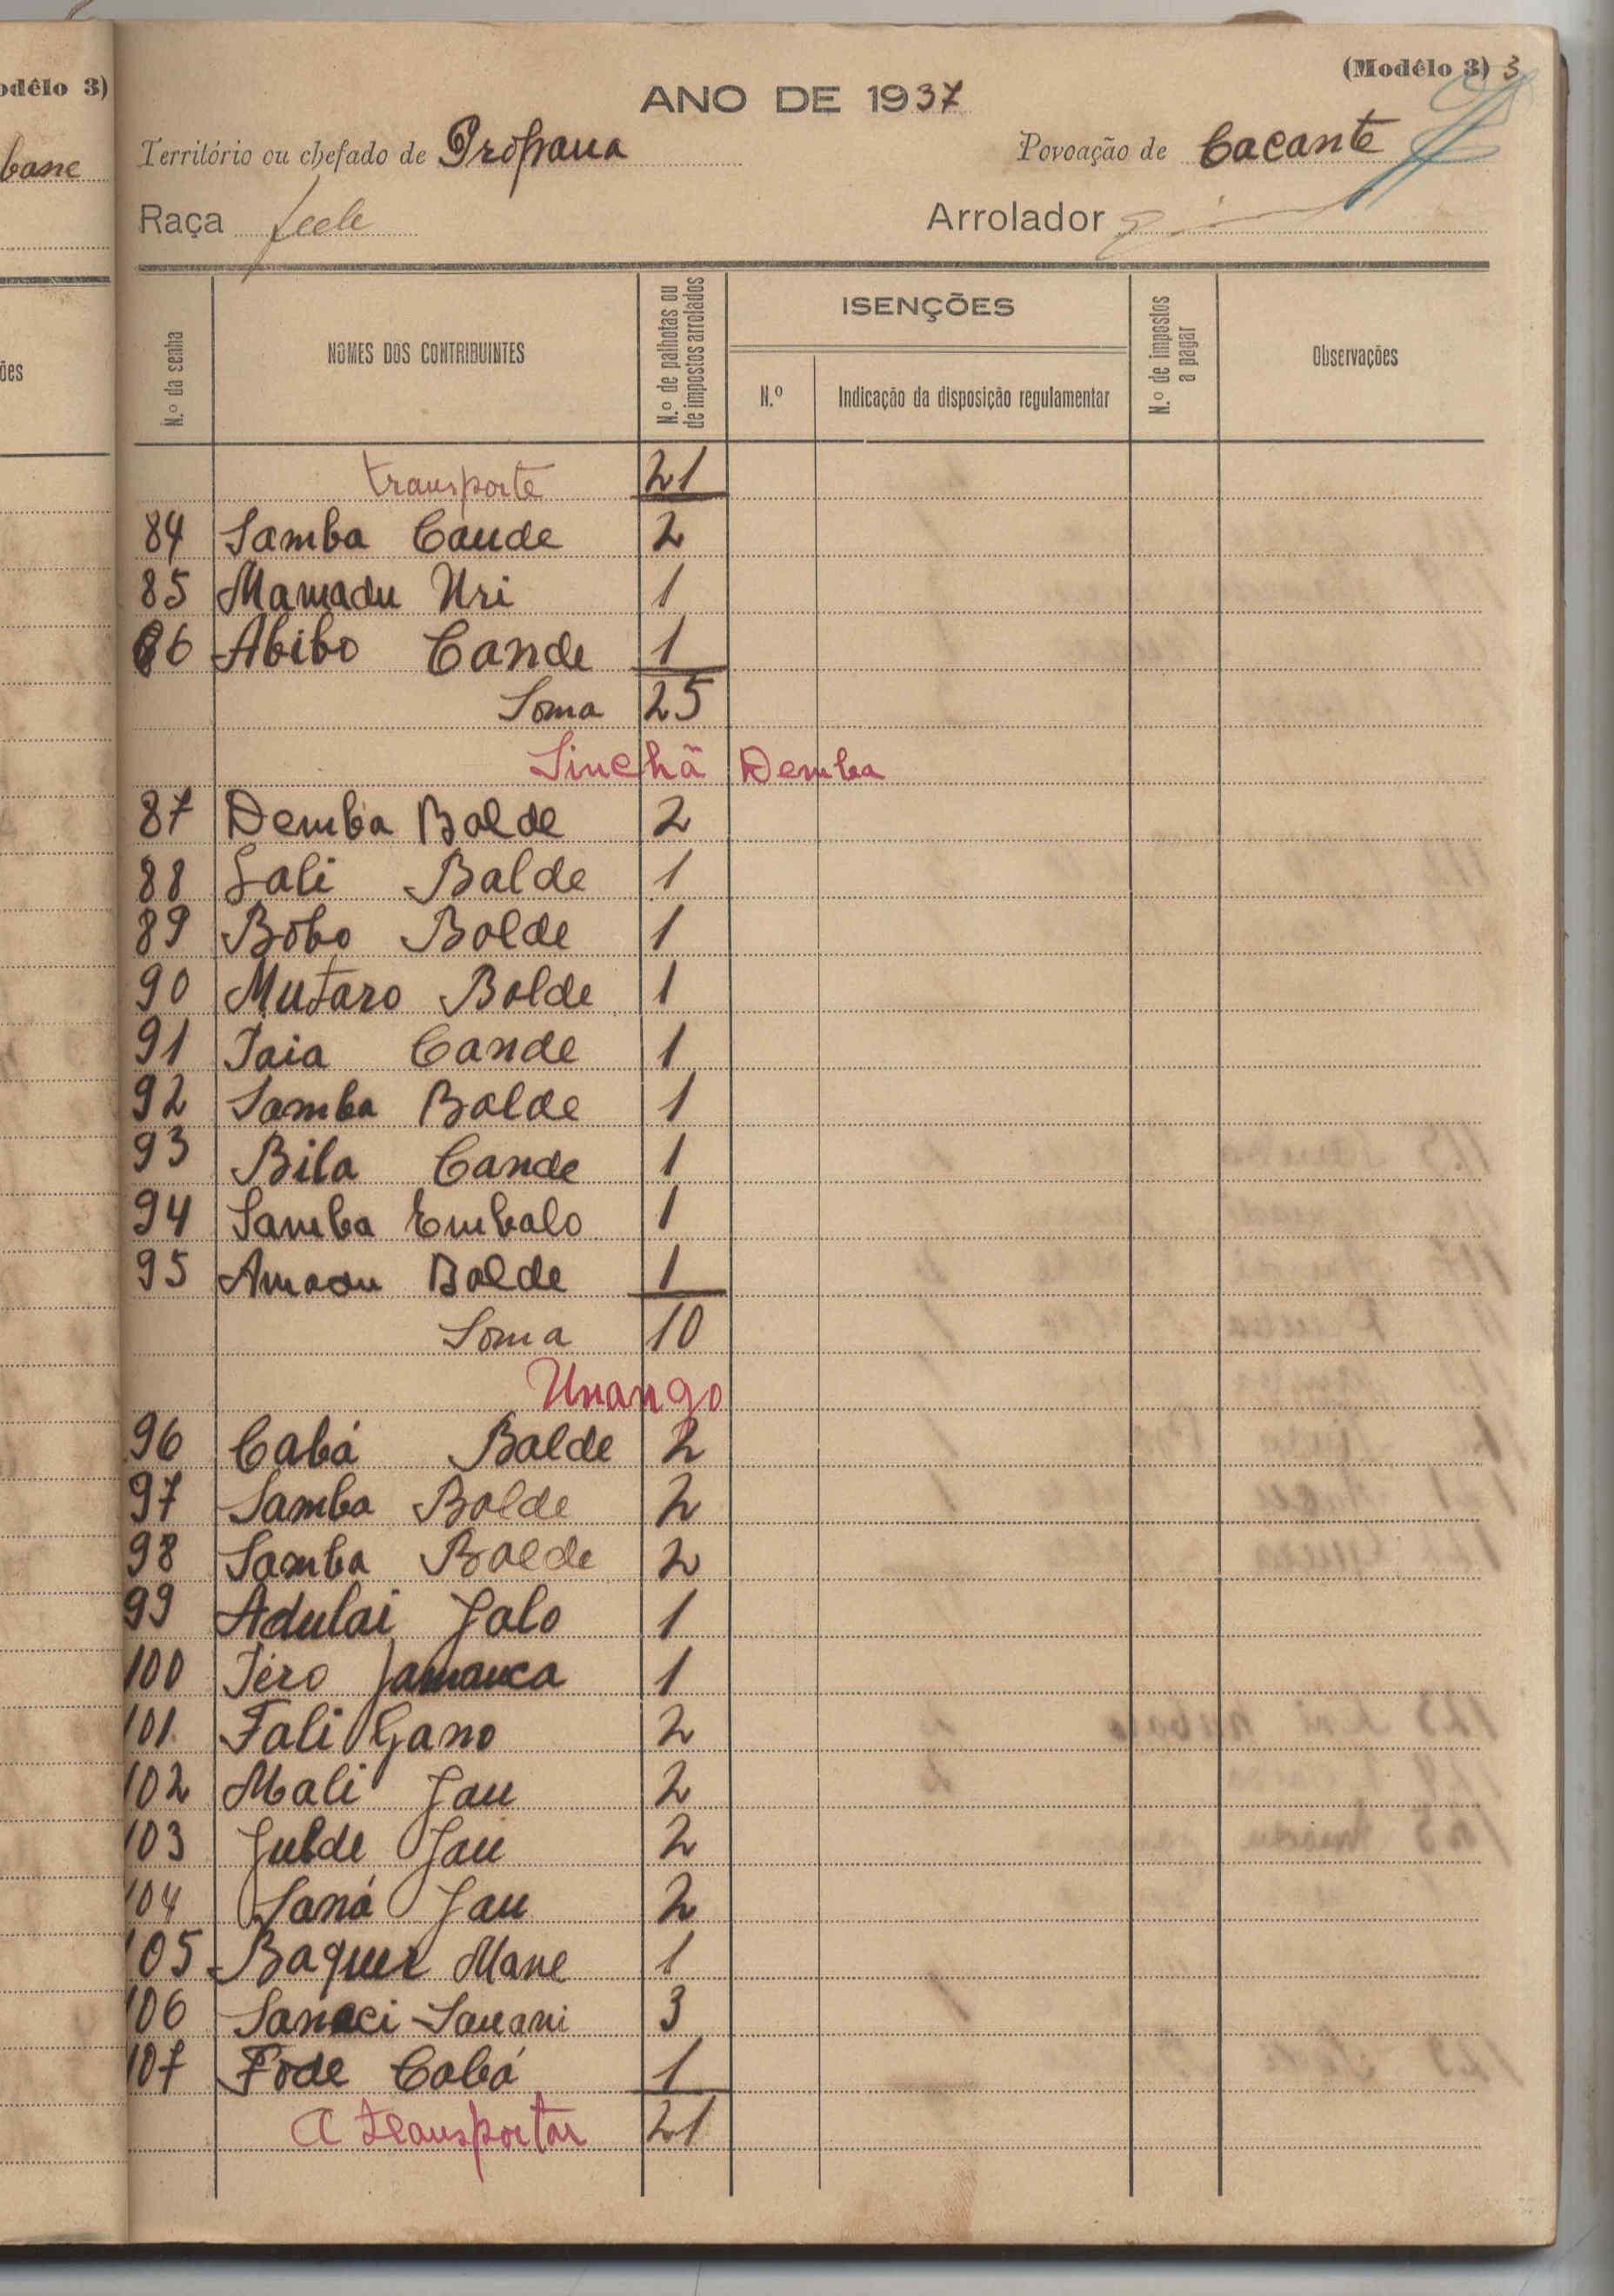 odêlo 3)
bane
ões
(Modêlo 3) 3
ANO DE 1937
Território ou chefado de Propana
Povoação de Cacante
Raça
Arrolador
N.º da senha
NOMES DOS CONTRIBUINTES
N.º de palhotas ou de impostos arrolados
ISENÇÕES
N.º
Indicação da disposição regulamentar
N.º de impostos a pagar
Observações
transporte 21
84 Samba Cande 2
85 Mamadu Uri 1
86 Abibo Cande 1
Soma 25
Sinchã Demba
87 Demba Balde 2
88 Sali Balde 1
89 Bobo Balde 1
90 Mutaro Balde 1
91 Iaia Cande 1
92 Samba Balde 1
93 Bila Cande 1
94 Samba Embalo 1
95 Amadu Balde 1
Soma 10
Unango
96 Cabá Balde 2
97 Samba Balde 2
98 Samba Balde 2
99 Adulai Jalo 1
100 Iéro Jamanca 1
101 Fali Gano 2
102 Mali Jau 2
103 Julde Jau 2
104 Saná Jau 2
105 Baquer Mane 1
106 Sanaci Sauani 3
107 Fode Cabá 1
A transportar 21